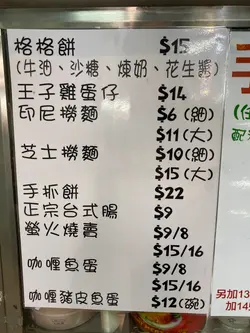 格格餅 $15
(牛油、沙糖、煉奶、花生醬)
王子雞蛋仔 $14
印尼撈麵 $6(細)
$11(大)
芝士撈麵 $10(細)
$15(大)
手抓餅 $22
正宗台式腸 $9
螢火燒賣 $9/8
$15/16
咖喱魚蛋 $9/8
$15/16
咖喱豬皮魚蛋 $12(碗)
配
另加13
加14